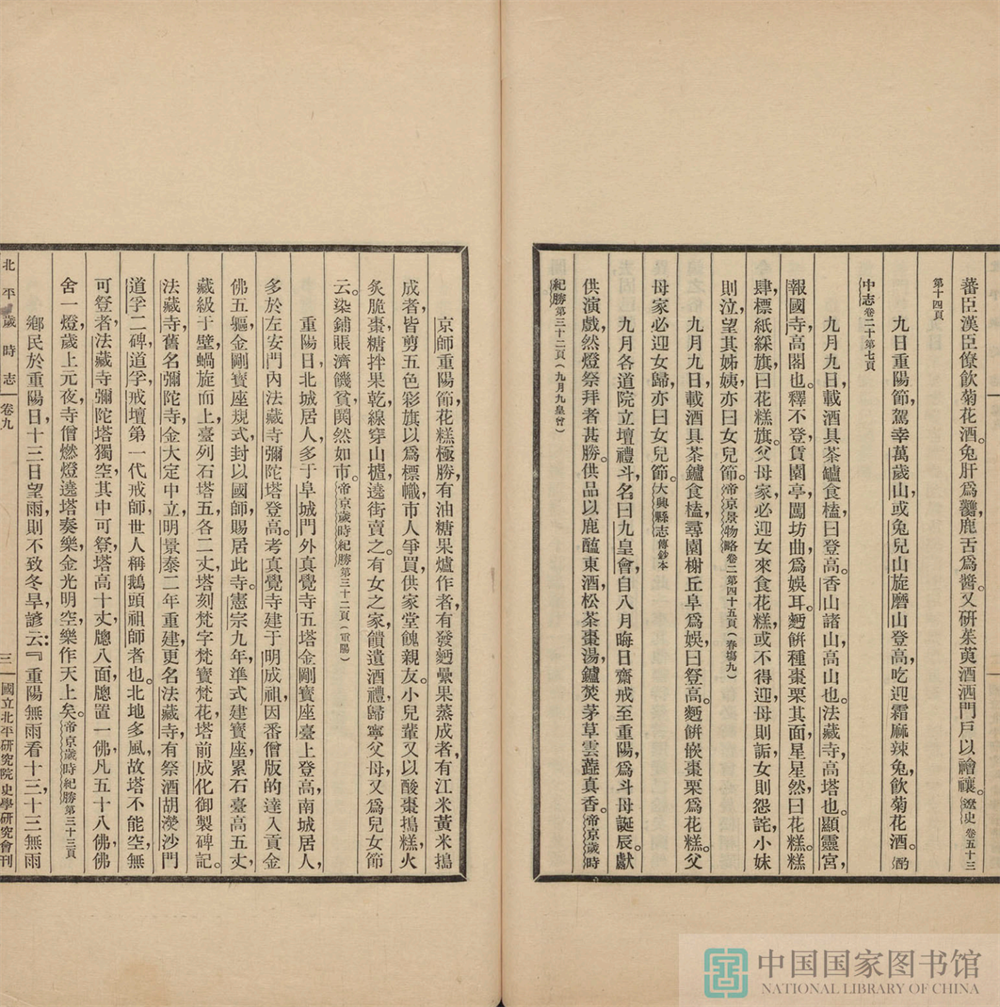 蕃臣漢臣僚飲菊花酒。兔肝爲臡,鹿舌爲醬。又研茱萸酒洒門戶以禬禳。遼史卷五十三
第十四頁
九日重陽節,駕幸萬歲山,或兔兒山旋磨山登高,吃迎霜麻辣兔,飲菊花酒。酌
中志卷二十第七頁
九月九日,載酒具茶鑪食榼,曰登高。香山諸山,高山也。法藏寺,高塔也。顯靈宮,
報國寺,高閣也。釋不登,賃園亭,闖坊曲爲娛耳。麪餅種棗栗,其面星星然,曰花糕。糕
肆,標紙綵旗,曰花糕旗。父母家,必迎女來食花糕,或不得迎,母則詬,女則怨詫,小妹
則泣,望其姊姨,亦曰女兒節。帝京景物略卷二第四十五頁(春塲九)
九月九日,載酒具茶鑪食榼,尋園榭丘阜爲娛,曰登高。麪餅嵌棗栗爲花糕。父
母家必迎女歸,亦曰女兒節。大興縣志傳鈔本
九月各道院立壇禮斗,名曰九皇會。自八月晦日齋戒至重陽,爲斗母誕辰,獻
供演戲,然燈祭拜者甚勝。供品以鹿醢東酒,松茶棗湯,鑪焚茅草雲蕋真香。帝京歲時
紀勝第三十二頁(九月九皇會)
京師重陽節,花糕極勝,有油糖果爐作者,有發麪纍果蒸成者,有江米黃米搗
成者,皆剪五色彩旗以爲標幟,市人爭買,供家堂,餽親友。小兒輩又以酸棗搗糕,火
炙脆棗,糖拌果乾,線穿山樝,遶街賣之。有女之家,饋遺酒禮,歸寧父母,又爲兒女節
云。染鋪賬濟饑貧,鬨然如市。帝京歲時紀勝第三十二頁(重陽)
重陽日,北城居人,多于阜城門外真覺寺五塔金剛寶座臺上登高,南城居人,
多於左安門內法藏寺彌陀塔登高。考真覺寺建于明成祖,因番僧版的達入貢金
佛五軀,金剛寶座規式,封以國師,賜居此寺。憲宗九年,準式建寶座,累石臺高五丈,
藏級于壁,蝸旋而上,臺列石塔五,各二丈,塔刻梵字梵寶梵花,塔前成化御製碑記。
法藏寺舊名彌陀寺,金大定中立,明景泰二年重建,更名法藏寺,有祭酒胡濙沙門
道孚二碑,道孚,戒壇第一代戒師,世人稱鵝頭祖師者也。北地多風,故塔不能空,無
可登者,法藏寺彌陀塔獨空其中可登,塔高十丈,牕八面,牕置一佛,凡五十八佛,佛
舍一燈,歲上元夜,寺僧燃燈遶塔奏樂,金光明空,樂作天上矣。帝京歲時紀勝第三十三頁
鄉民於重陽日,十三日望雨,則不致冬旱,諺云:『重陽無雨看十三,十三無雨
北平歲時志 卷九
三 國立北平研究院史學研究會刊
中国国家图书馆
NATIONAL LIBRARY OF CHINA